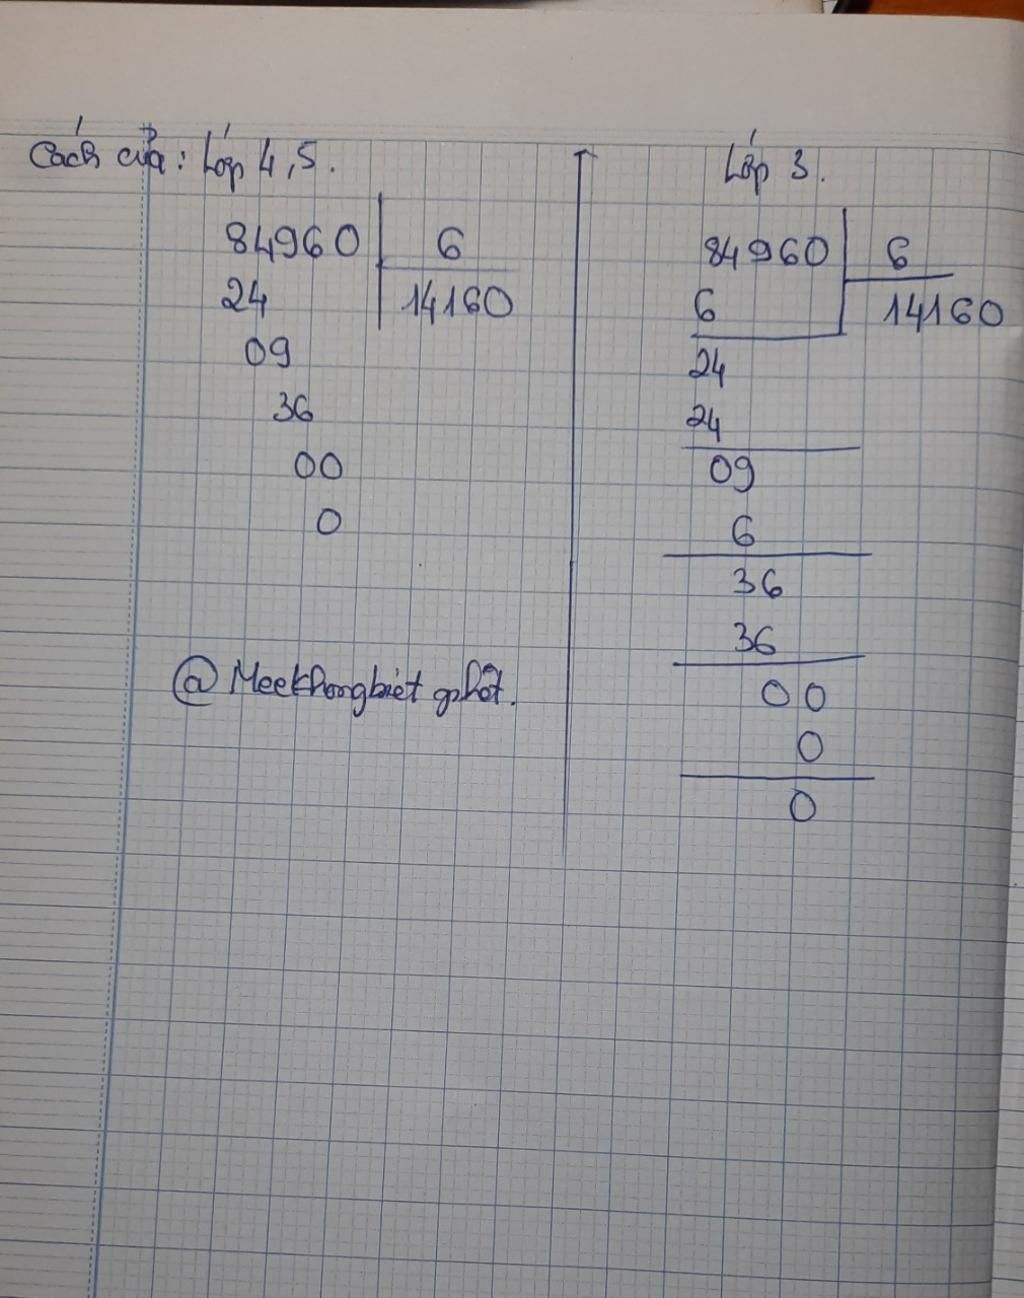 Cách của: Lớp 4,5.
84960 6
24 14160
09
36
00
0
@ Meekhongbiet
Lớp 3.
84960 6
6 14160
24
24
09
6
36
36
00
0
0